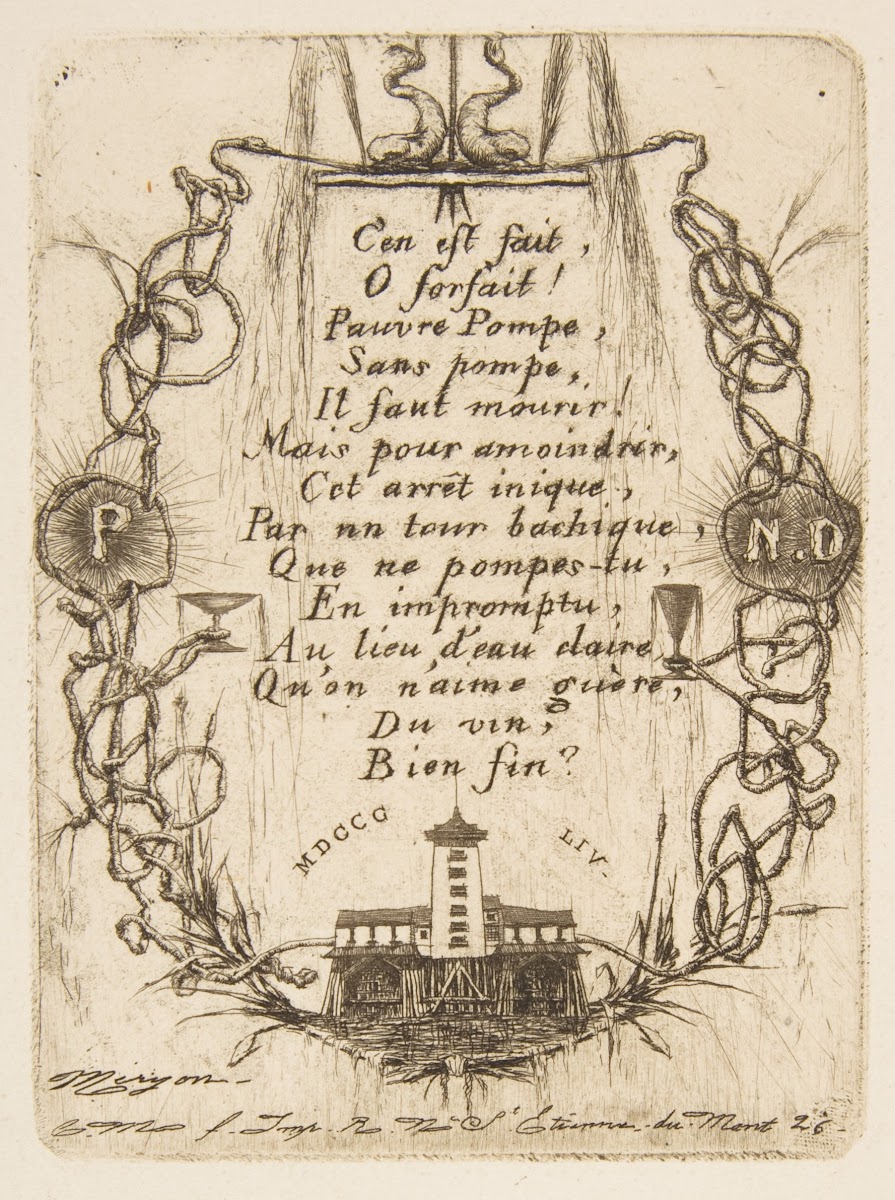 C'en est fait,
O forfait!
Pauvre Pompe,
Sans pompe,
Il faut mourir!
Mais pour amoindrir,
Cet arrêt inique,
Par nn tour bachique,
Que ne pompes-tu,
En impromptu,
Au lieu d'eau claire
Qu'on n'aime guère,
Du vin,
Bien fin?
P
N.D
MDCCC
LIV.
Meryon
C. M. f. Imp. R. Nve St Etienne-du-Mont 26.